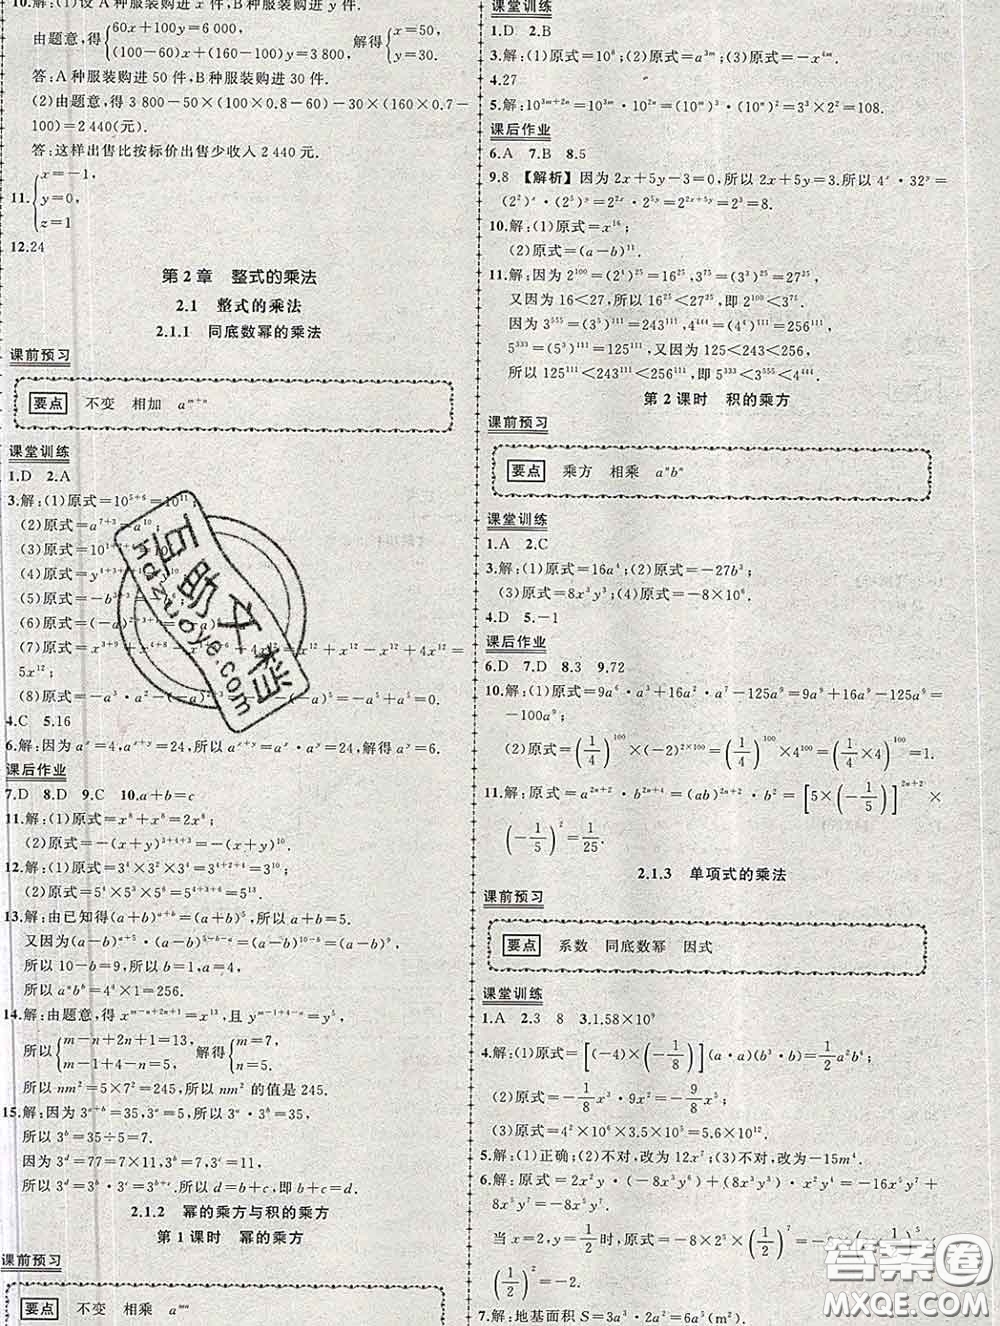 10.解:(1)设 A 种服装购进 x 件,B 种服装购进 y 件.
由题意,得{60x+100y=6 000, (100-60)x+(160-100)y=3 800, 解得{x=50, y=30.
答:A 种服装购进 50 件,B 种服装购进 30 件.
(2)由题意,得 3 800-50×(100×0.8-60)-30×(160×0.7-
100)=2 440(元).
答:这样出售比按标价出售少收入 2 440 元.
11.{x=-1, y=0, z=1
12.24
第 2 章 整式的乘法
2.1 整式的乘法
2.1.1 同底数幂的乘法
课前预习
要点 不变 相加 a^{m+n}
课堂训练
1.D 2.A
3.解:(1)原式=10^{5+6}=10^{11};
(2)原式=a^{7+3}=a^{10};
(3)原式=10^{1+
(4)原式=y^{4+3+
(5)原式=-b^{3+
(6)原式=
(7)原式=x^{3+9}+x^{
+4x^{12}=x^{12}+x^{12}-x^{12}+4x^{12}=
5x^{12};
(8)原式=-a^3·a^2-(-a^
)=-a^5+a^5=0.
4.C 5.16
6.解:因为 a^x=4,a^{x+y}=24,所以 a^{x+y}=a^x·a^y=24,解得 a^y=6.
课后作业
7.D 8.D 9.C 10.a+b=c
11.解:(1)原式=x^8+x^8=2x^8;
(2)原式=-(x+y)^{3+4+3}=-(x+y)^{10}.
12.解:(1)原式=3^4×3^2×3^4=3^{4+2+4}=3^{10};
(2)原式=5^4×5^3×5^6=5^{4+3+6}=5^{13}.
13.解:由已知得(a+b)^{a+b}=(a+b)^5,所以 a+b=5.
又因为(a-b)^{a+5}·(a-b)^{5-b-a}=(a-b)^{10-b}=(a-b)^9,
所以 10-b=9,所以 b=1,所以 a=4.
所以 a^b b^a=4^1×1=256.
14.解:由题意,得 x^{m-n+2n+1}=x^{13},且 y^{m-1+4-n}=y^5,
所以{m-n+2n+1=13, m-1+4-n=5, 解得{m=7, n=5.
所以 nm^2=5×7^2=245,所以 nm^2 的值是 245.
15.解:因为 3^{a+b}=35,3^a=5,所以 3^a·3^b=35,
所以 3^b=35÷5=7.
因为 3^d=77=7×11,3^c=11,
所以 3^d=3^b·3^c=3^{b+c},所以 d=b+c,即 b+c=d.
2.1.2 幂的乘方与积的乘方
第 1 课时 幂的乘方
课前预习
要点 不变 相乘 a^{mn}
课堂训练
1.D 2.B
3.解:(1)原式=10^8;(2)原式=a^{3m};(3)原式=-x^{4m}.
4.27
5.解:10^{3m+2n}=10^{3m}·10^{2n}=(10^m)^3·(10^n)^2=3^3×2^2=108.
课后作业
6.A 7.B 8.5
9.8 【解析】因为 2x+5y-3=0,所以 2x+5y=3.所以 4^x·32^y=
(2^2)^x·(2^5)^y=2^{2x}·2^{5y}=2^{2x+5y}=2^3=8.
10.解:(1)原式=x^{16};
(2)原式=(a-b)^{11}.
11.解:因为 2^{100}=(2^4)^{25}=16^{25},3^{75}=(3^3)^{25}=27^{25},
又因为 16<27,所以 16^{25}<27^{25},即 2^{100}<3^{75}.
因为 3^{555}=(3^5)^{111}=243^{111},4^{444}=(4^4)^{111}=256^{111},
5^{333}=(5^3)^{111}=125^{111},又因为 125<243<256,
所以 125^{111}<243^{111}<256^{111},即 5^{333}<3^{555}<4^{444}.
第 2 课时 积的乘方
课前预习
要点 乘方 相乘 a^n b^n
课堂训练
1.A 2.C
3.解:(1)原式=16a^4;(2)原式=-27b^3;
(3)原式=8x^3y^3;(4)原式=-8×10^6.
4.D 5.-1
课后作业
6.D 7.D 8.3 9.72
10.解:(1)原式=9a^6·a^3+16a^2·a^7-125a^9=9a^9+16a^9-125a^9=
-100a^9;
(2)原式=(1/4)^{100}×(-2)^{2×100}=(1/4)^{100}×4^{100}=(1/4×4)^{100}=1.
11.解:原式=a^{2n+2}·b^{2n+4}=(ab)^{2n+2}·b^2=[5×(-1/5)]^{2n+2}×
(-1/5)^2=1/25.
2.1.3 单项式的乘法
课前预习
要点 系数 同底数幂 因式
课堂训练
1.A 2.3 8 3.1.58×10^9
4.解:(1)原式=[(-4)×(-1/8)](a·a)(b^3·b)=1/2a^2b^4;
(2)原式=-1/8x^3·9x^2=-9/8x^5;
(3)原式=4^2×10^5×3.5×10^6=5.6×10^{12}.
5.解:(1)正确;(2)不对,改为 12x^7;(3)不对,改为-15m^4.
6.解:原式=2x^2y·(-8x^3y^6)+(8x^3y^6)·x^2y=-16x^5y^7+
8x^5y^7=-8x^5y^7.
当 x=2,y=1/2时,原式=-8×2^5×(1/2)^7=
(1/2)^2=-2.
7.解:地基面积 S=3a^3·2a^2=6a^5(m^2).
百助文档
hdzuoye.com
答案圈
MXQE.COM